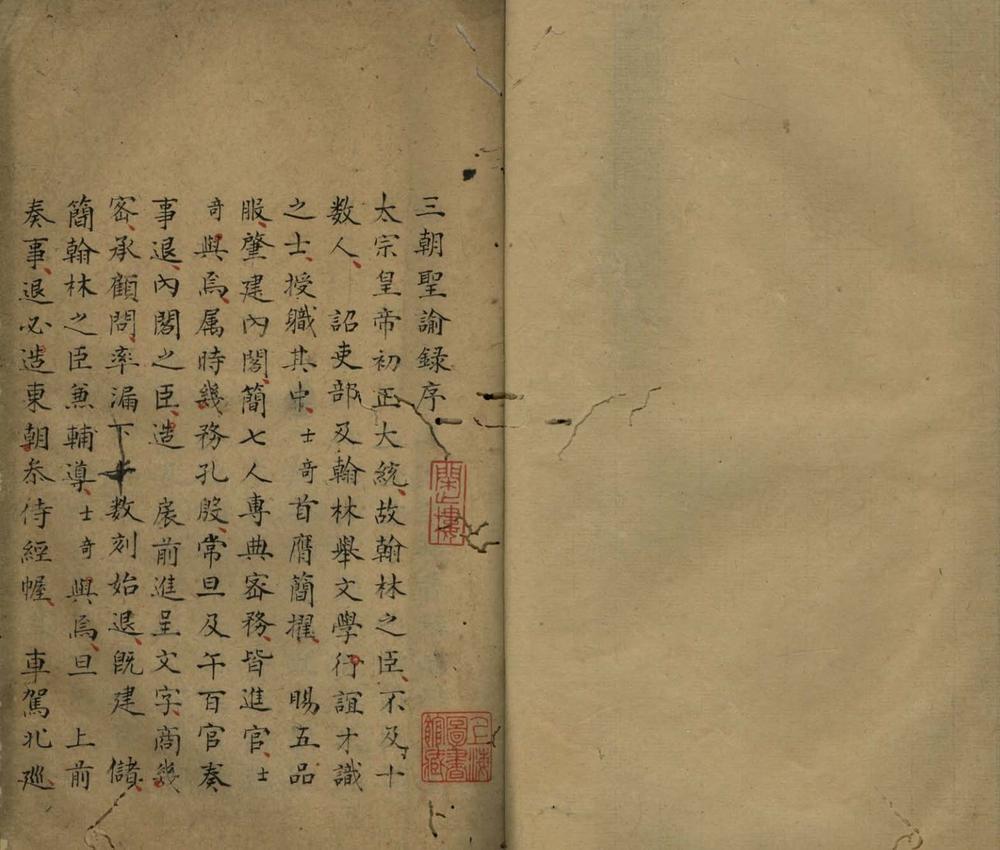 三朝聖諭錄序
太宗皇帝初正大統故翰林之臣不及十
数人詔吏部及翰林舉文學行誼才識
之士授職其中士奇首膺簡擢賜五品
服肇建內閣簡七人專典密務皆進官士
奇與焉属時幾務孔殷常旦及午百官奏
事退內閣之臣造扆前進呈文字商幾
密承顧問率漏下十数刻始退旣建儲
簡翰林之臣兼輔導士奇與焉旦上前
奏事退必造東朝叅侍經幄車駕北廵
上海圖書館藏